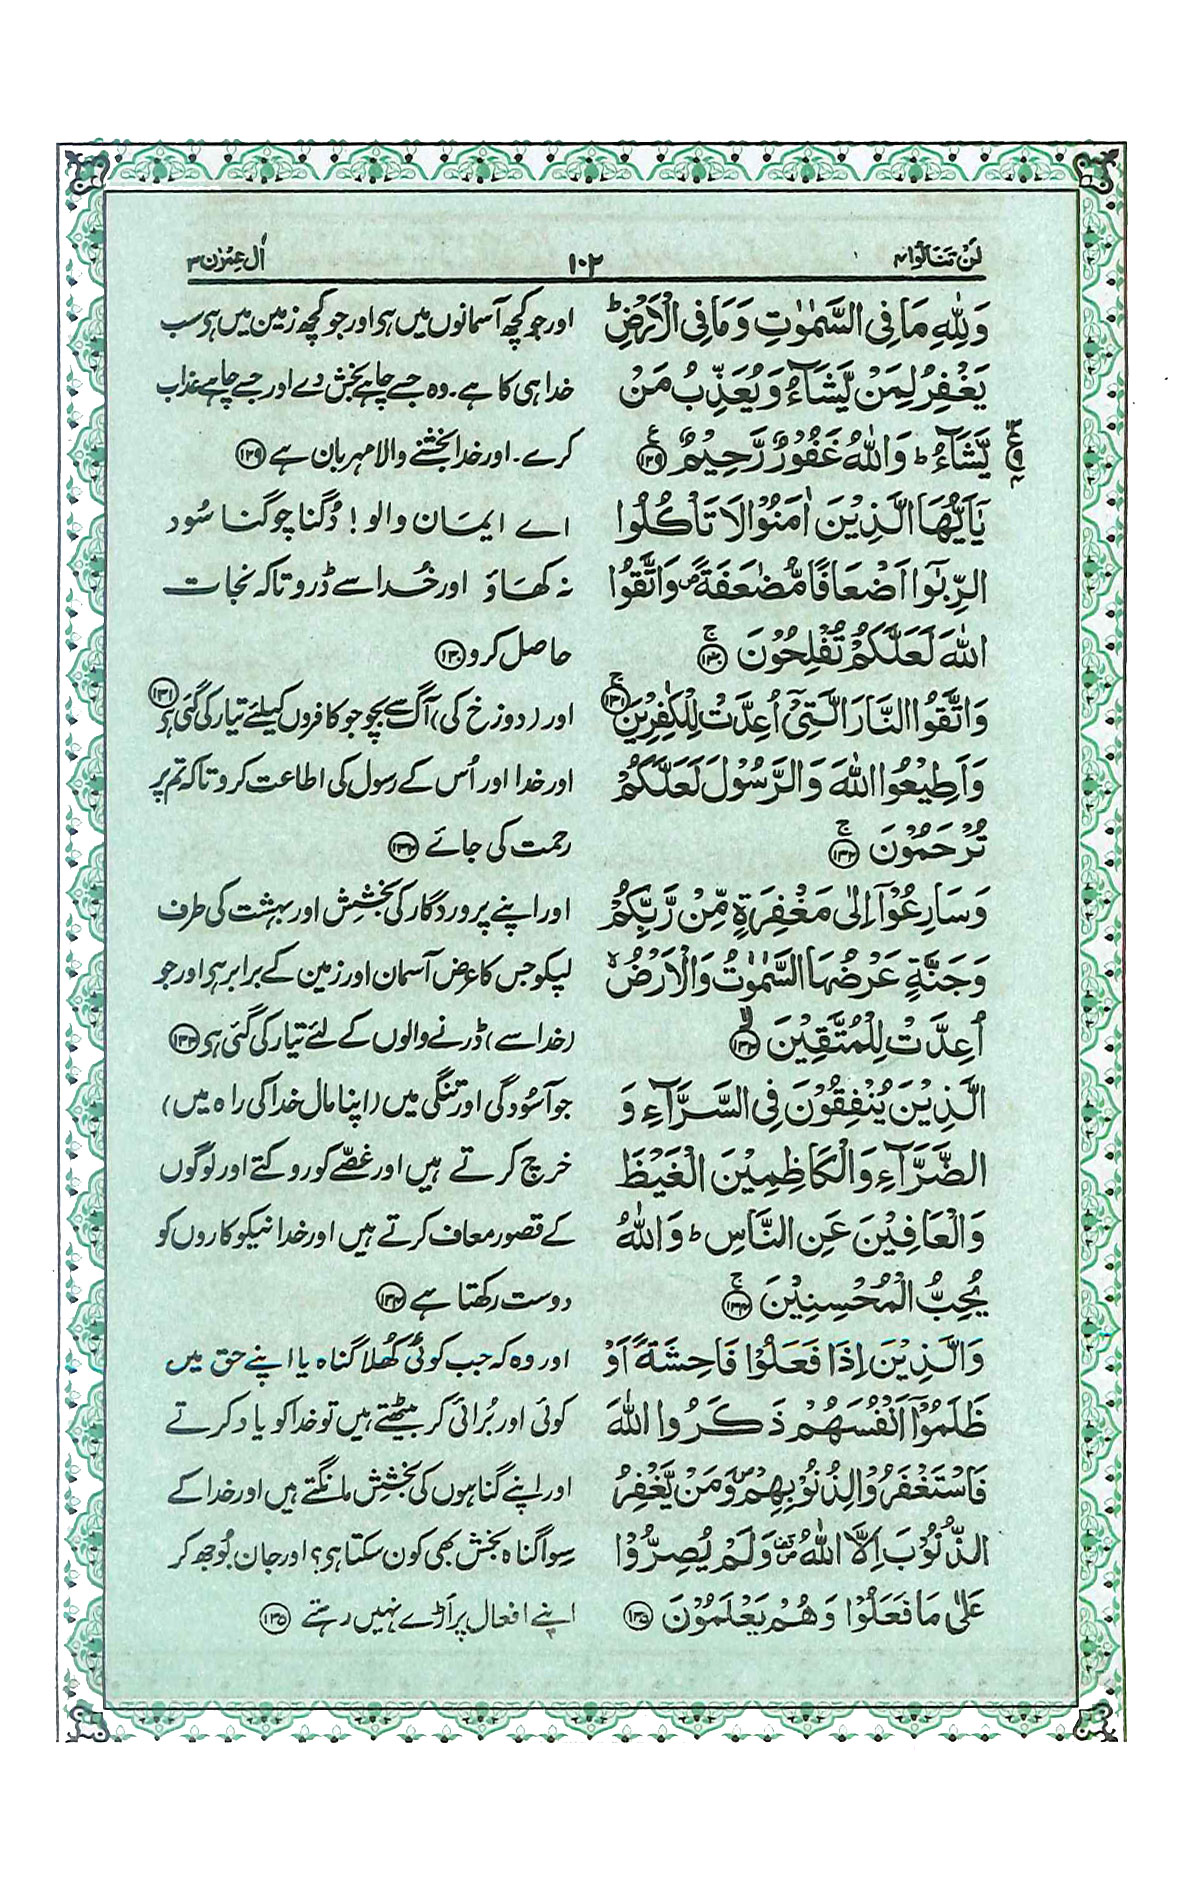 لَنْ تَنَالُوا ۴
۱۰۲
اٰلِ عِمْرٰن ۳
وَلِلّٰهِ مَا فِی السَّمٰوٰتِ وَمَا فِی الْاَرْضِ ؕ
یَغْفِرُ لِمَنْ یَّشَآءُ وَیُعَذِّبُ مَنْ
یَّشَآءُ ؕ وَاللّٰهُ غَفُوْرٌ رَّحِیْمٌ ۱۲۹
یٰۤاَیُّهَا الَّذِیْنَ اٰمَنُوْا لَا تَاْكُلُوا
الرِّبٰۤوا اَضْعَافًا مُّضٰعَفَةً ۪ وَاتَّقُوا
اللّٰهَ لَعَلَّكُمْ تُفْلِحُوْنَ ۚ ۱۳۰
وَاتَّقُوا النَّارَ الَّتِیْۤ اُعِدَّتْ لِلْكٰفِرِیْنَ ۚ ۱۳۱
وَاَطِیْعُوا اللّٰهَ وَالرَّسُوْلَ لَعَلَّكُمْ
تُرْحَمُوْنَ ۚ ۱۳۲
وَسَارِعُوْۤا اِلٰی مَغْفِرَةٍ مِّنْ رَّبِّكُمْ
وَجَنَّةٍ عَرْضُهَا السَّمٰوٰتُ وَالْاَرْضُ ۙ
اُعِدَّتْ لِلْمُتَّقِیْنَ ۙ ۱۳۳
الَّذِیْنَ یُنْفِقُوْنَ فِی السَّرَّآءِ وَ
الضَّرَّآءِ وَالْكَاظِمِیْنَ الْغَیْظَ
وَالْعَافِیْنَ عَنِ النَّاسِ ؕ وَاللّٰهُ
یُحِبُّ الْمُحْسِنِیْنَ ۚ ۱۳۴
وَالَّذِیْنَ اِذَا فَعَلُوْا فَاحِشَةً اَوْ
ظَلَمُوْۤا اَنْفُسَهُمْ ذَكَرُوا اللّٰهَ
فَاسْتَغْفَرُوْا لِذُنُوْبِهِمْ ۪ وَمَنْ یَّغْفِرُ
الذُّنُوْبَ اِلَّا اللّٰهُ ۪ وَلَمْ یُصِرُّوْا
عَلٰی مَا فَعَلُوْا وَهُمْ یَعْلَمُوْنَ ۱۳۵
اور جو کچھ آسمانوں میں ہی اور جو کچھ زمین میں ہی سب
خدا ہی کا ہے۔ وہ جسے چاہے بخش دے اور جسے چاہے عذاب
کرے۔ اور خدا بخشنے والا مہربان ہے ۱۲۹
اے ایمان والو! دُگنا چوگنا سُود
نہ کھاؤ اور خُدا سے ڈرو تاکہ نجات
حاصل کرو ۱۳۰
اور (دوزخ کی) آگ سے بچو جو کافروں کیلئے تیار کی گئی ہی ۱۳۱
اور خدا اور اُس کے رسول کی اطاعت کرو تاکہ تم پر
رحمت کی جائے ۱۳۲
اور اپنے پروردگار کی بخشِش اور بہشت کی طرف
لپکو جس کا عرض آسمان اور زمین کے برابر ہی اور جو
(خدا سے) ڈرنے والوں کے لئے تیار کی گئی ہی ۱۳۳
جو آسُودگی اور تنگی میں (اپنا مال خدا کی راہ میں)
خرچ کرتے ہیں اور غصّے کو روکتے اور لوگوں
کے قصور معاف کرتے ہیں اور خدا نیکو کاروں کو
دوست رکھتا ہے ۱۳۴
اور وہ کہ جب کوئی کُھلا گناہ یا اپنے حق میں
کوئی اور بُرائی کر بیٹھتے ہیں تو خدا کو یاد کرتے
اور اپنے گناہوں کی بخشِش مانگتے ہیں اور خدا کے
سِوا گناہ بخش بھی کون سکتا ہی؟ اور جان بُوجھ کر
اپنے افعال پر اَڑے نہیں رہتے ۱۳۵